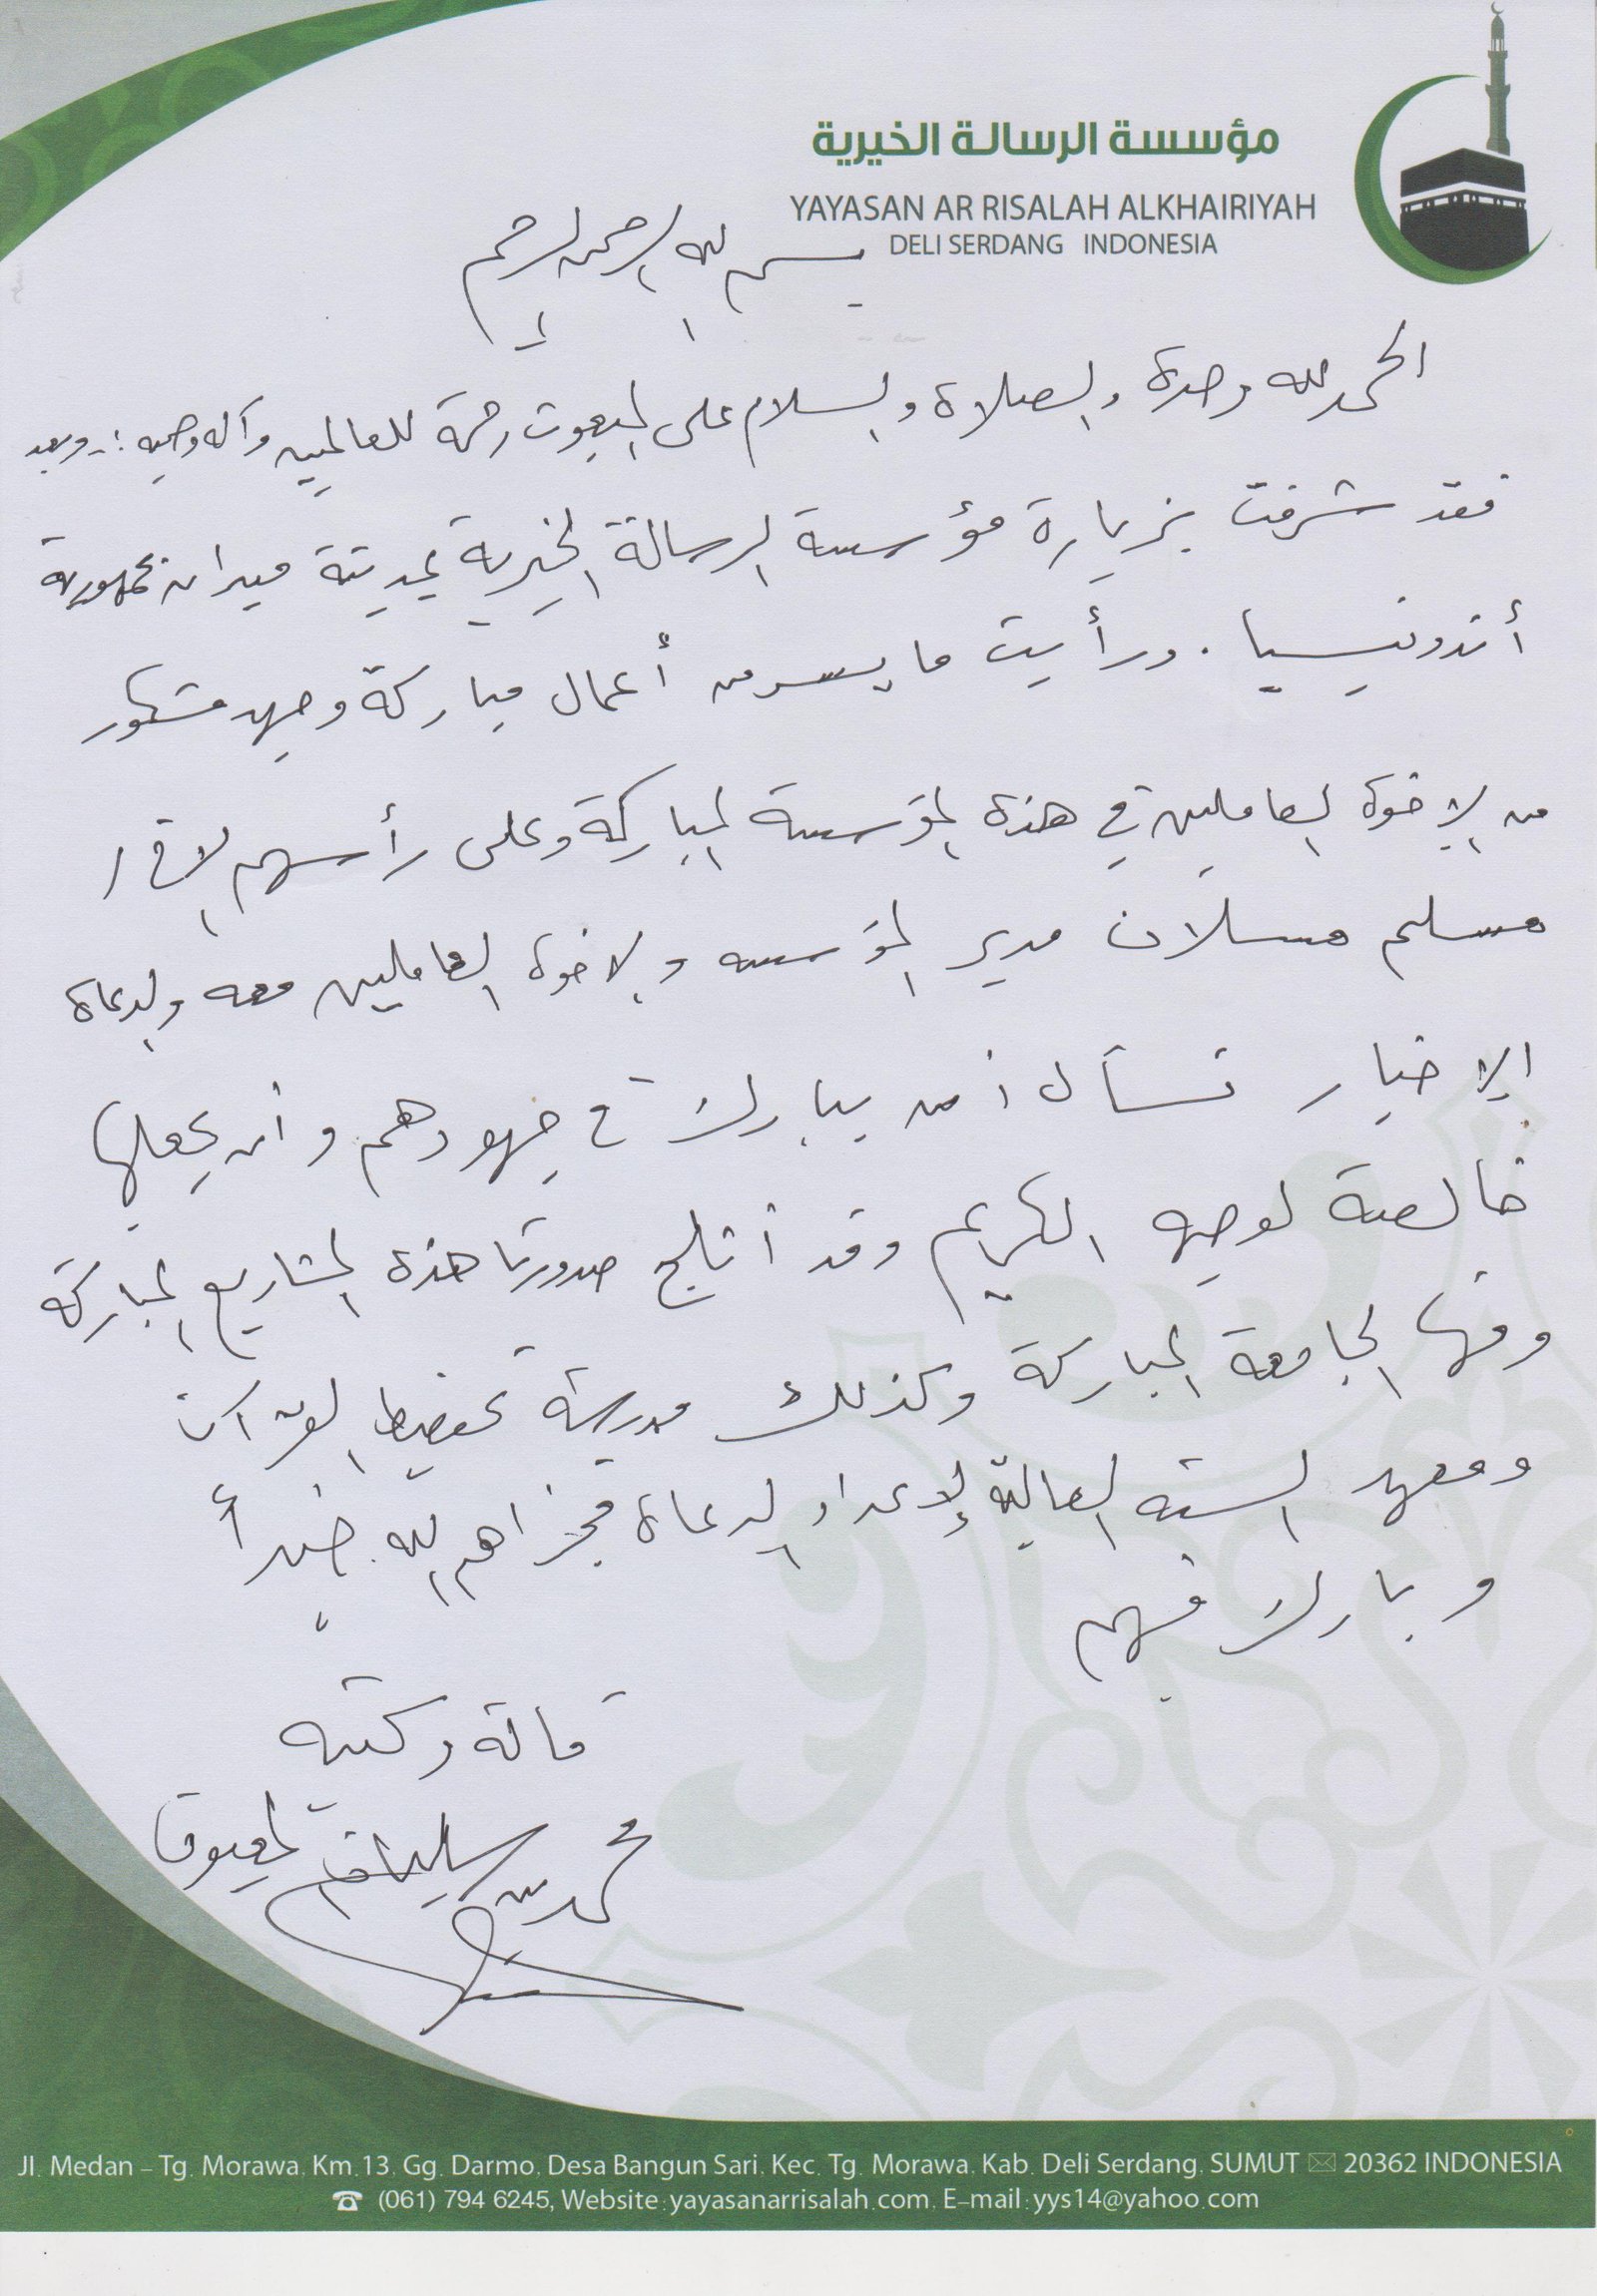 مؤسسة الرسالة الخيرية
YAYASAN AR RISALAH ALKHAIRIYAH
DELI SERDANG INDONESIA
بسم الله الرحمن الرحيم
الحمد لله وحده والصلاة والسلام على المبعوث رحمة للعالمين وآله وصحبه :- وبعد
فقد شرفت بزيارة مؤسسة الرسالة الخيرية بمدينة ميدان بجمهورية
أندونيسيا . ورأيت ما يسر من أعمال مباركة وجهد مشكور
من الإخوة العاملين في هذه المؤسسة المباركة وعلى رأسهم الأخ /
مسلم مسلان مدير المؤسسه والإخوة العاملين معه والدعاة
الإخيار نسأل أن يبارك في جهودهم وأن يجعلها
خالصة لوجهه الكريم وقد أثلج صدورنا هذه المشاريع المباركة
ومنها الجامعة المباركة وكذلك مدرسة تحفيظ القرآن
ومعهد السنه العالية لإعداد الدعاة فجزاهم الله خيراً
وبارك فيهم
قاله وكتبه
محمد بن سليمان
Jl. Medan – Tg. Morawa. Km.13. Gg. Darmo. Desa Bangun Sari. Kec. Tg. Morawa. Kab. Deli Serdang. SUMUT 20362 INDONESIA
(061) 794 6245, Website : yayasanarrisalah.com. E-mail : yys14@yahoo.com